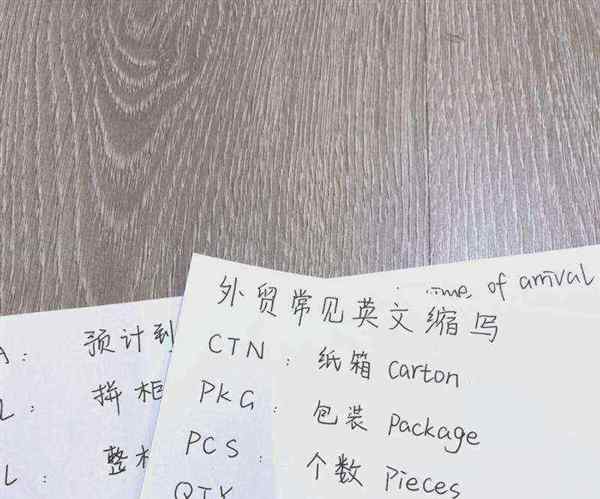 外贸常见英文缩写
CTN: 纸箱 Carton
PKG: 包装 Package
PCS: 个数 Pieces
QTY
of arrival
A: 预计到
L: 拼柜
L: 整